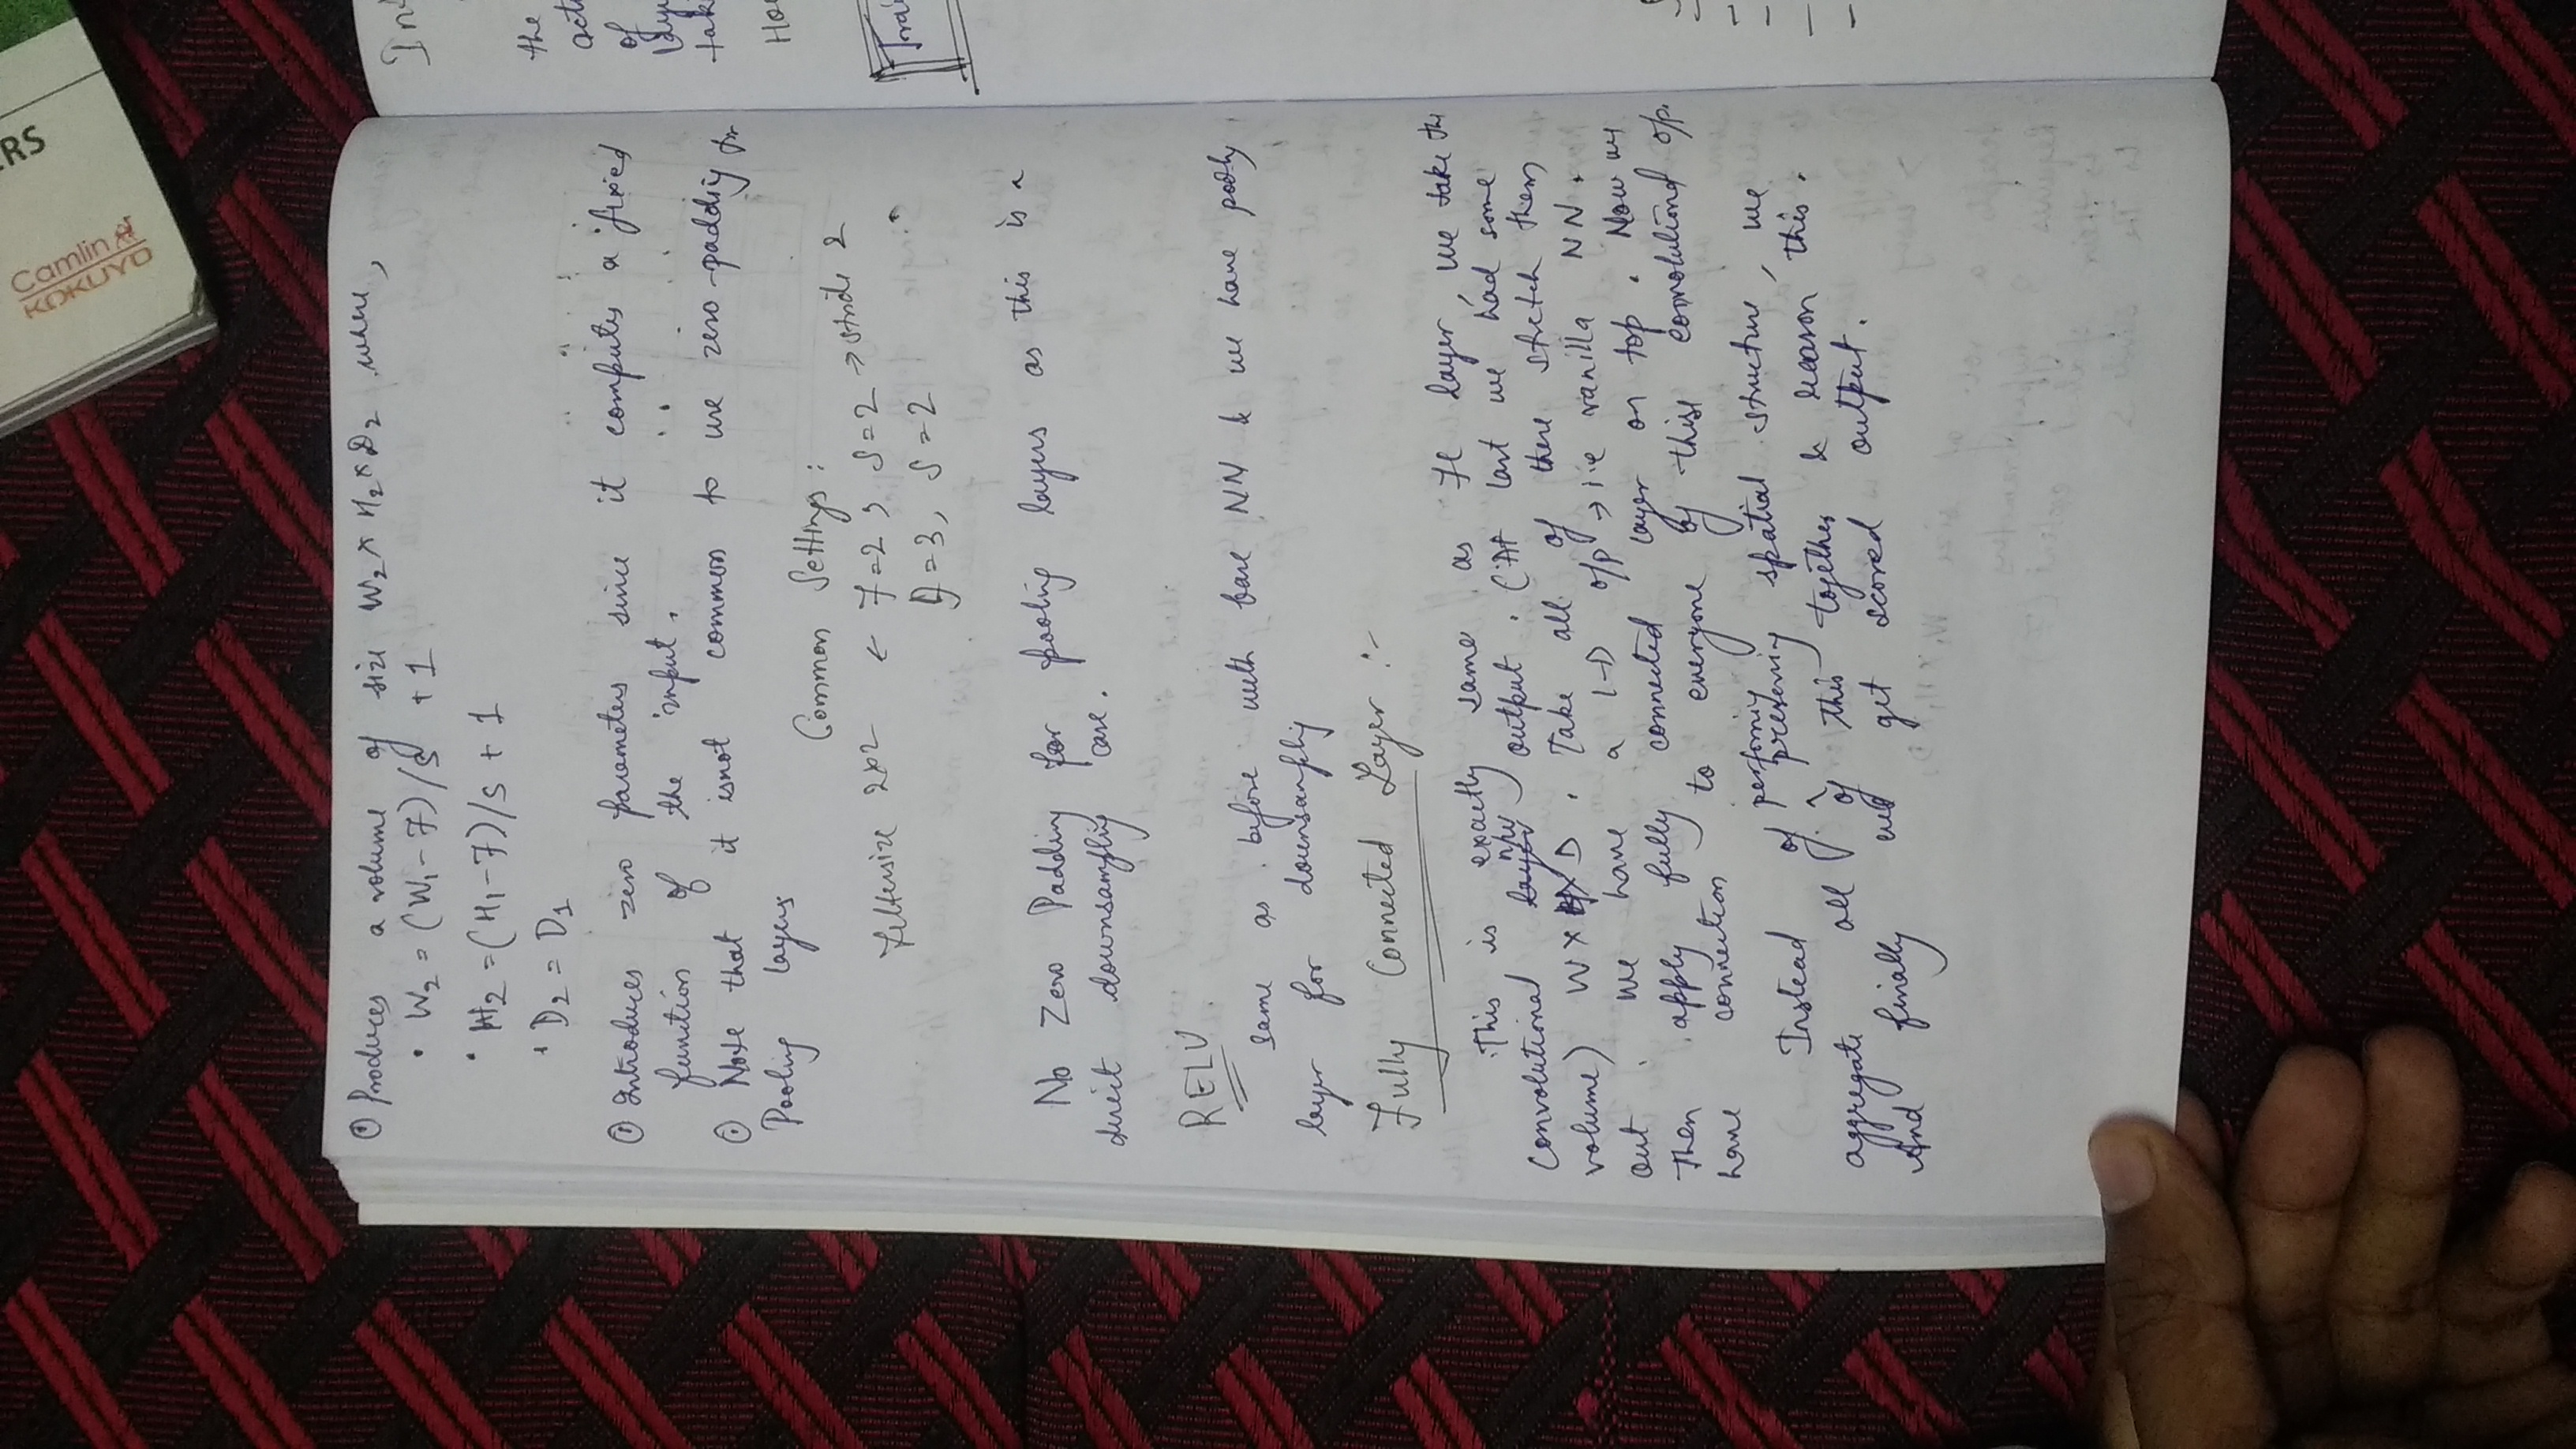 ⊙ Produces a volume of size W2 x H2 x D2 where,
• W2 = (W1 - F)/S + 1
• H2 = (H1 - F)/S + 1
• D2 = D1
⊙ Introduces zero parameters since it computes a fixed
function of the input.
⊙ Note that it is not common to use zero-padding for
Pooling layers
Common Settings:
Filtersize 2x2 ← F=2, S=2 → stride 2
F=3, S=2
No Zero Padding for pooling layers as this is a
direct downsampling case.
RELU
same as before with base NN & we have pooling
layer for downsampling
Fully Connected Layer :-
This is exactly same as FC layer we take the
convolutional output. (At last we had some
volume) W x H x D. Take all of these stretch them
out. We have a 1-D o/p → i.e vanilla NN.
Then apply fully connected layer on top. Now we
have connection to everyone of this convolutional o/p.
Instead of preserving spatial structure, we
aggregate all of this together & reason this.
And finally will get scored output.
Camlin
KOKUYO
RS
the
of